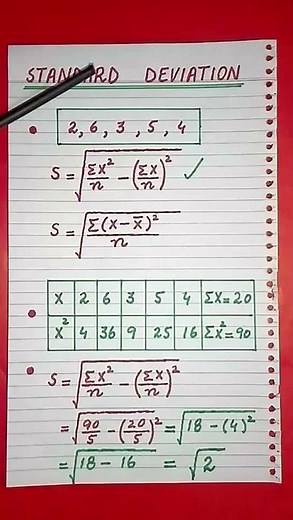 STANDARD DEVIATION
2, 6, 3, 5, 4
S = √(Σx²/n − (Σx/n)²) ✓
S = √(Σ(x − x̄)²/n)
X 2 6 3 5 4 Σx=20
X² 4 36 9 25 16 Σx²=90
S = √(Σx²/n − (Σx/n)²)
= √(90/5 − (20/5)²) = √(18 − (4)²)
= √(18 − 16) = √2